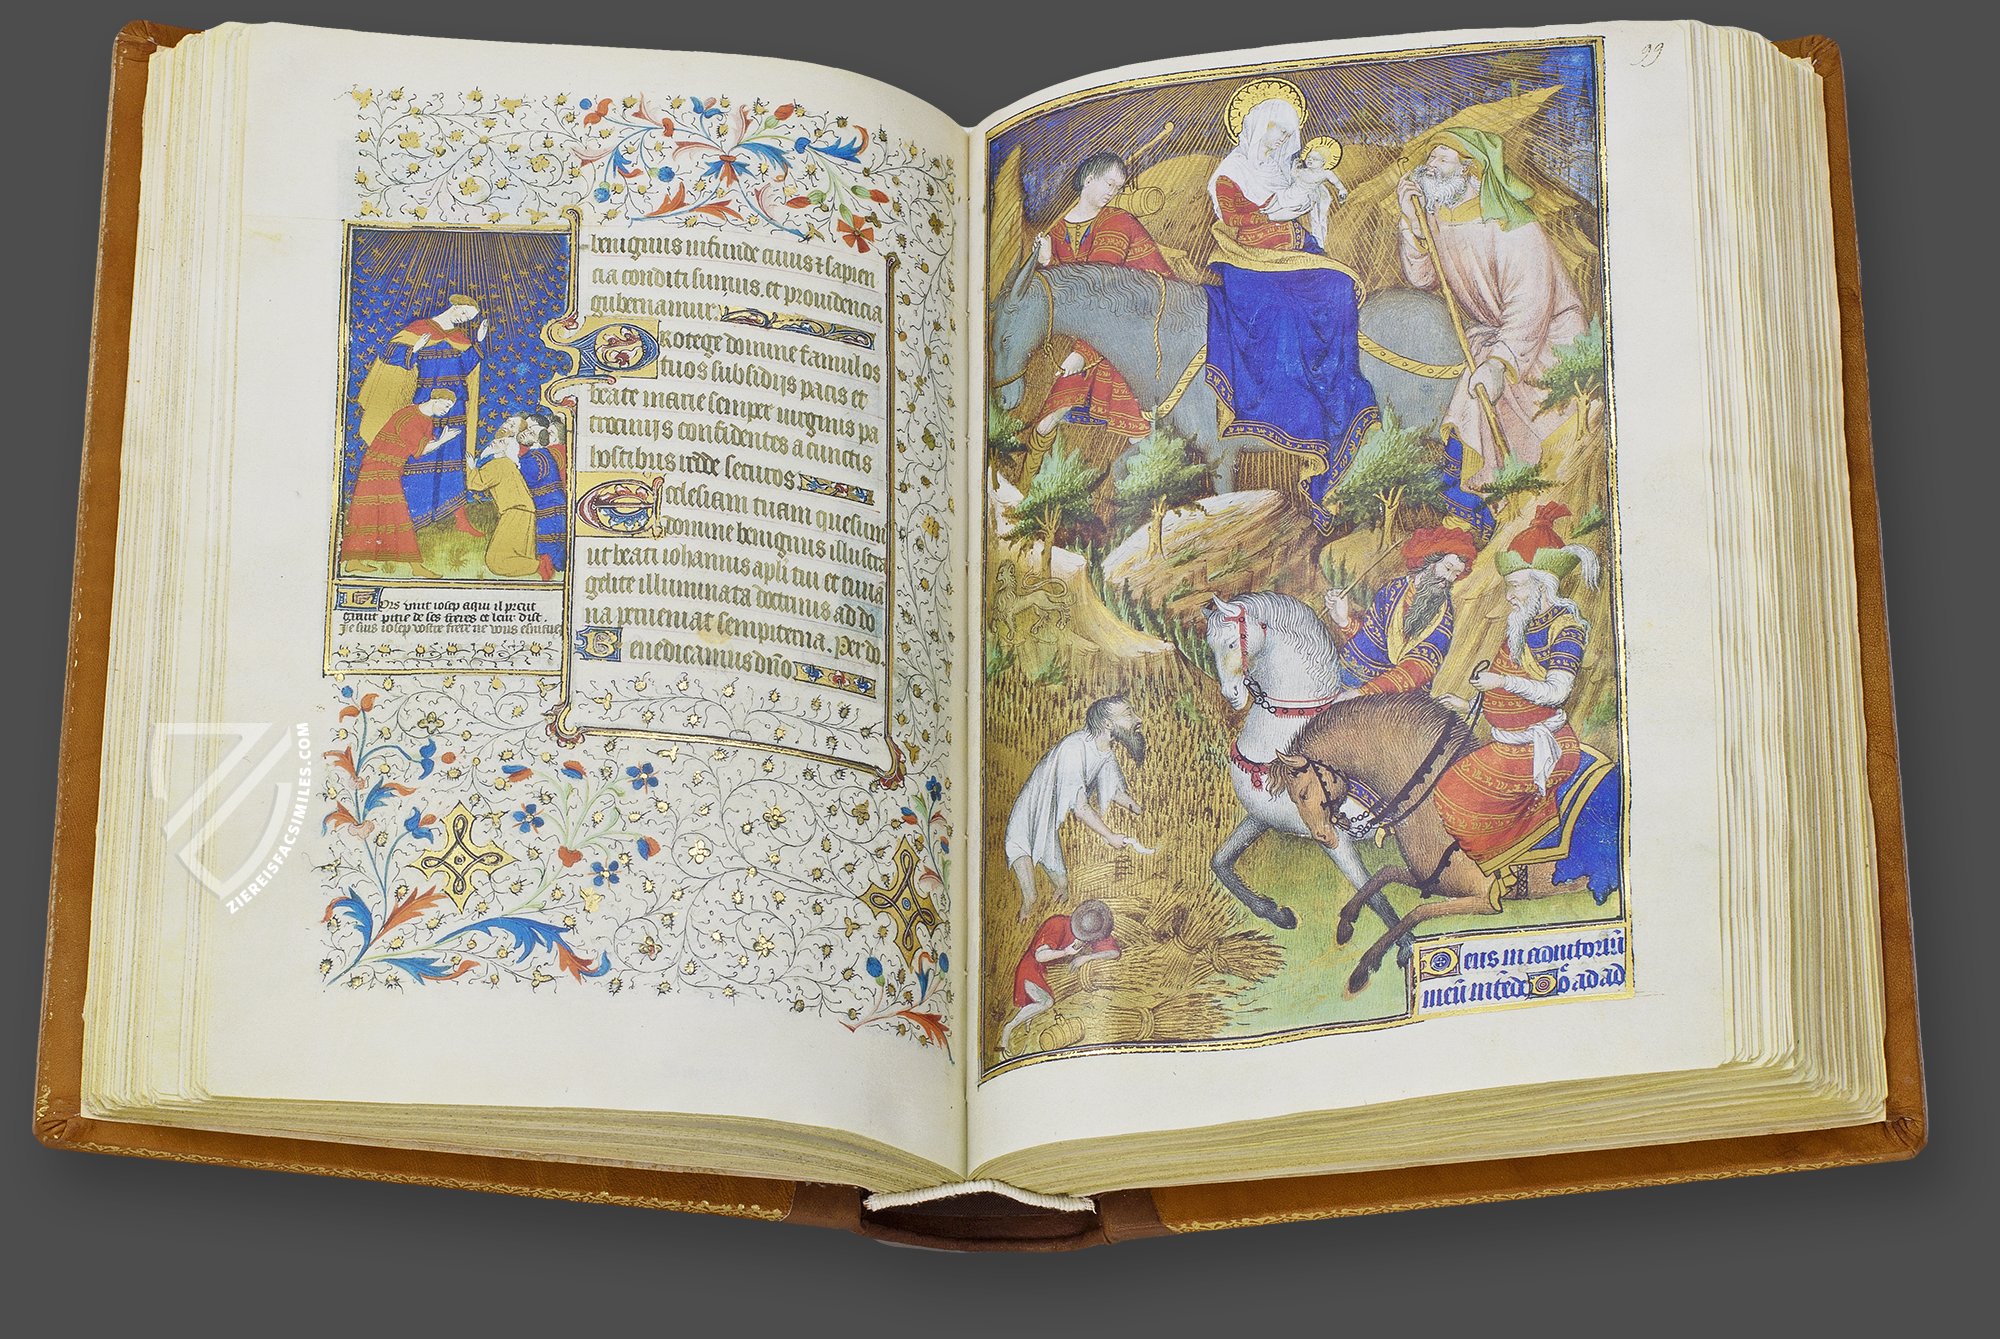 benignus infunde cuius ⁊ sapien
cia conditi sumus. et prouidencia
gubernamur.
Protege domine famulos
tuos subsidijs pacis et
beate marie semper uirginis pa
trocinijs confidentes a cunctis
hostibus redde securos
Ecclesiam tuam quesum
domine benignus illustra
ut beati iohannis apłi tui et euuā
geliste illuminata doctrinis ad do
na perueniat sempiterna. Per do
Benedicamus dn̄o
Lors vint iosep a qui il preut
grant pitie de ses freres et leur dist.
Je suis iosep vostre frere ne vous
99
Deus in adiutoriū
meū intēde Dn̄e ad ad
ZIEREISFACSIMILES.COM